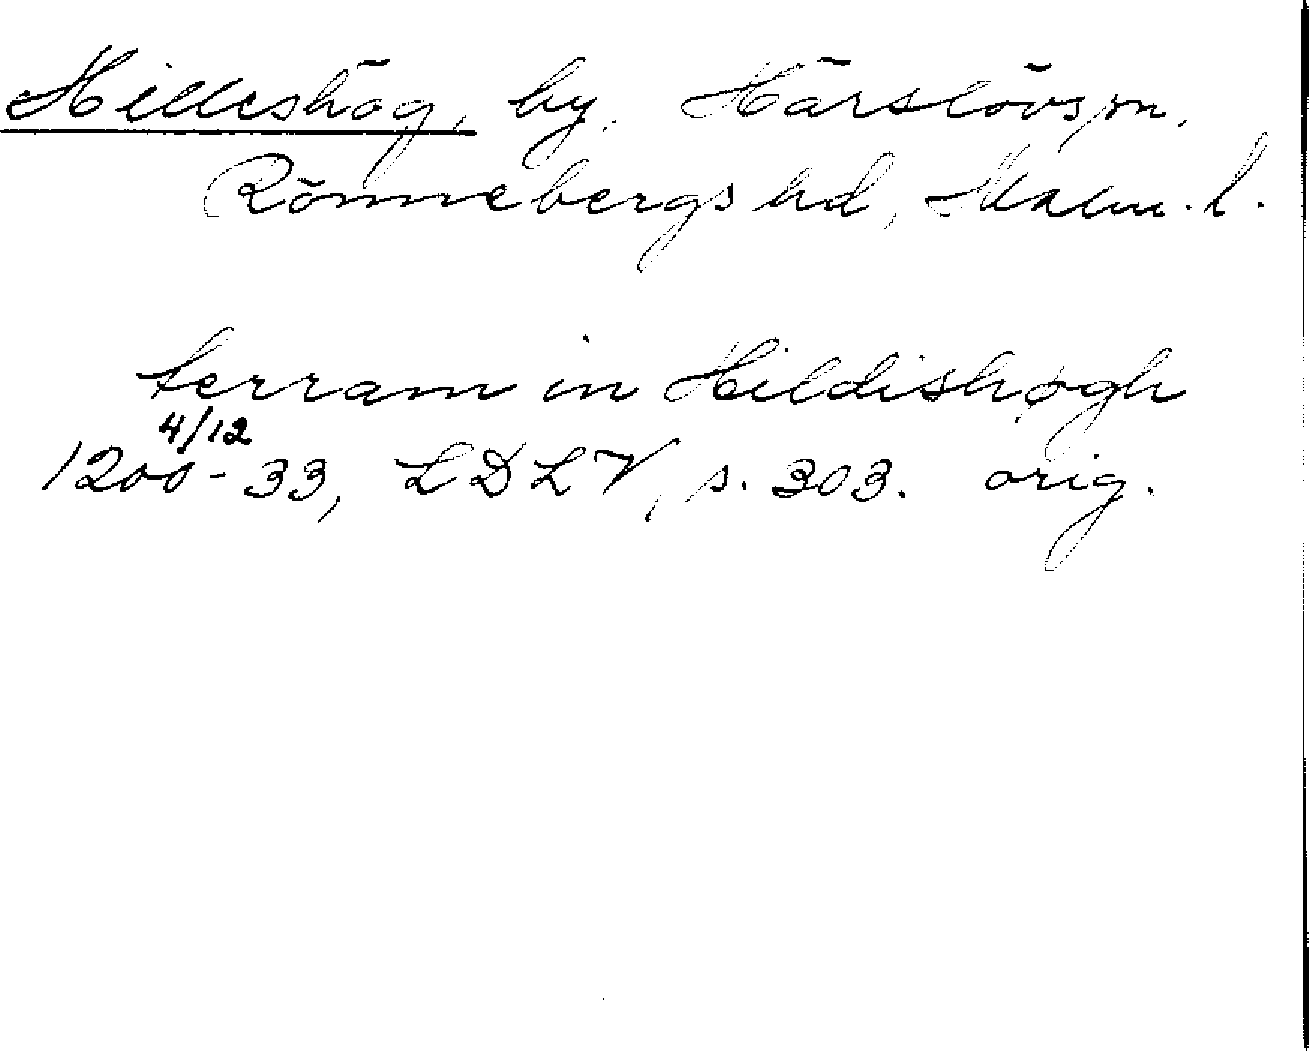 Hilleshög, by, Härslövs sn,
Rönnebergs hd, Malm. l.
terram in Hildishøgh
4/12
1200-33, LDLV, s. 303. orig.